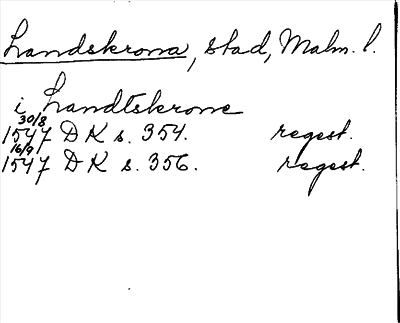 Landskrona, stad, Malm. l.
i Landtskrone
30/8
1547 DK s. 354. regest.
16/9
1547 DK s. 356. regest.